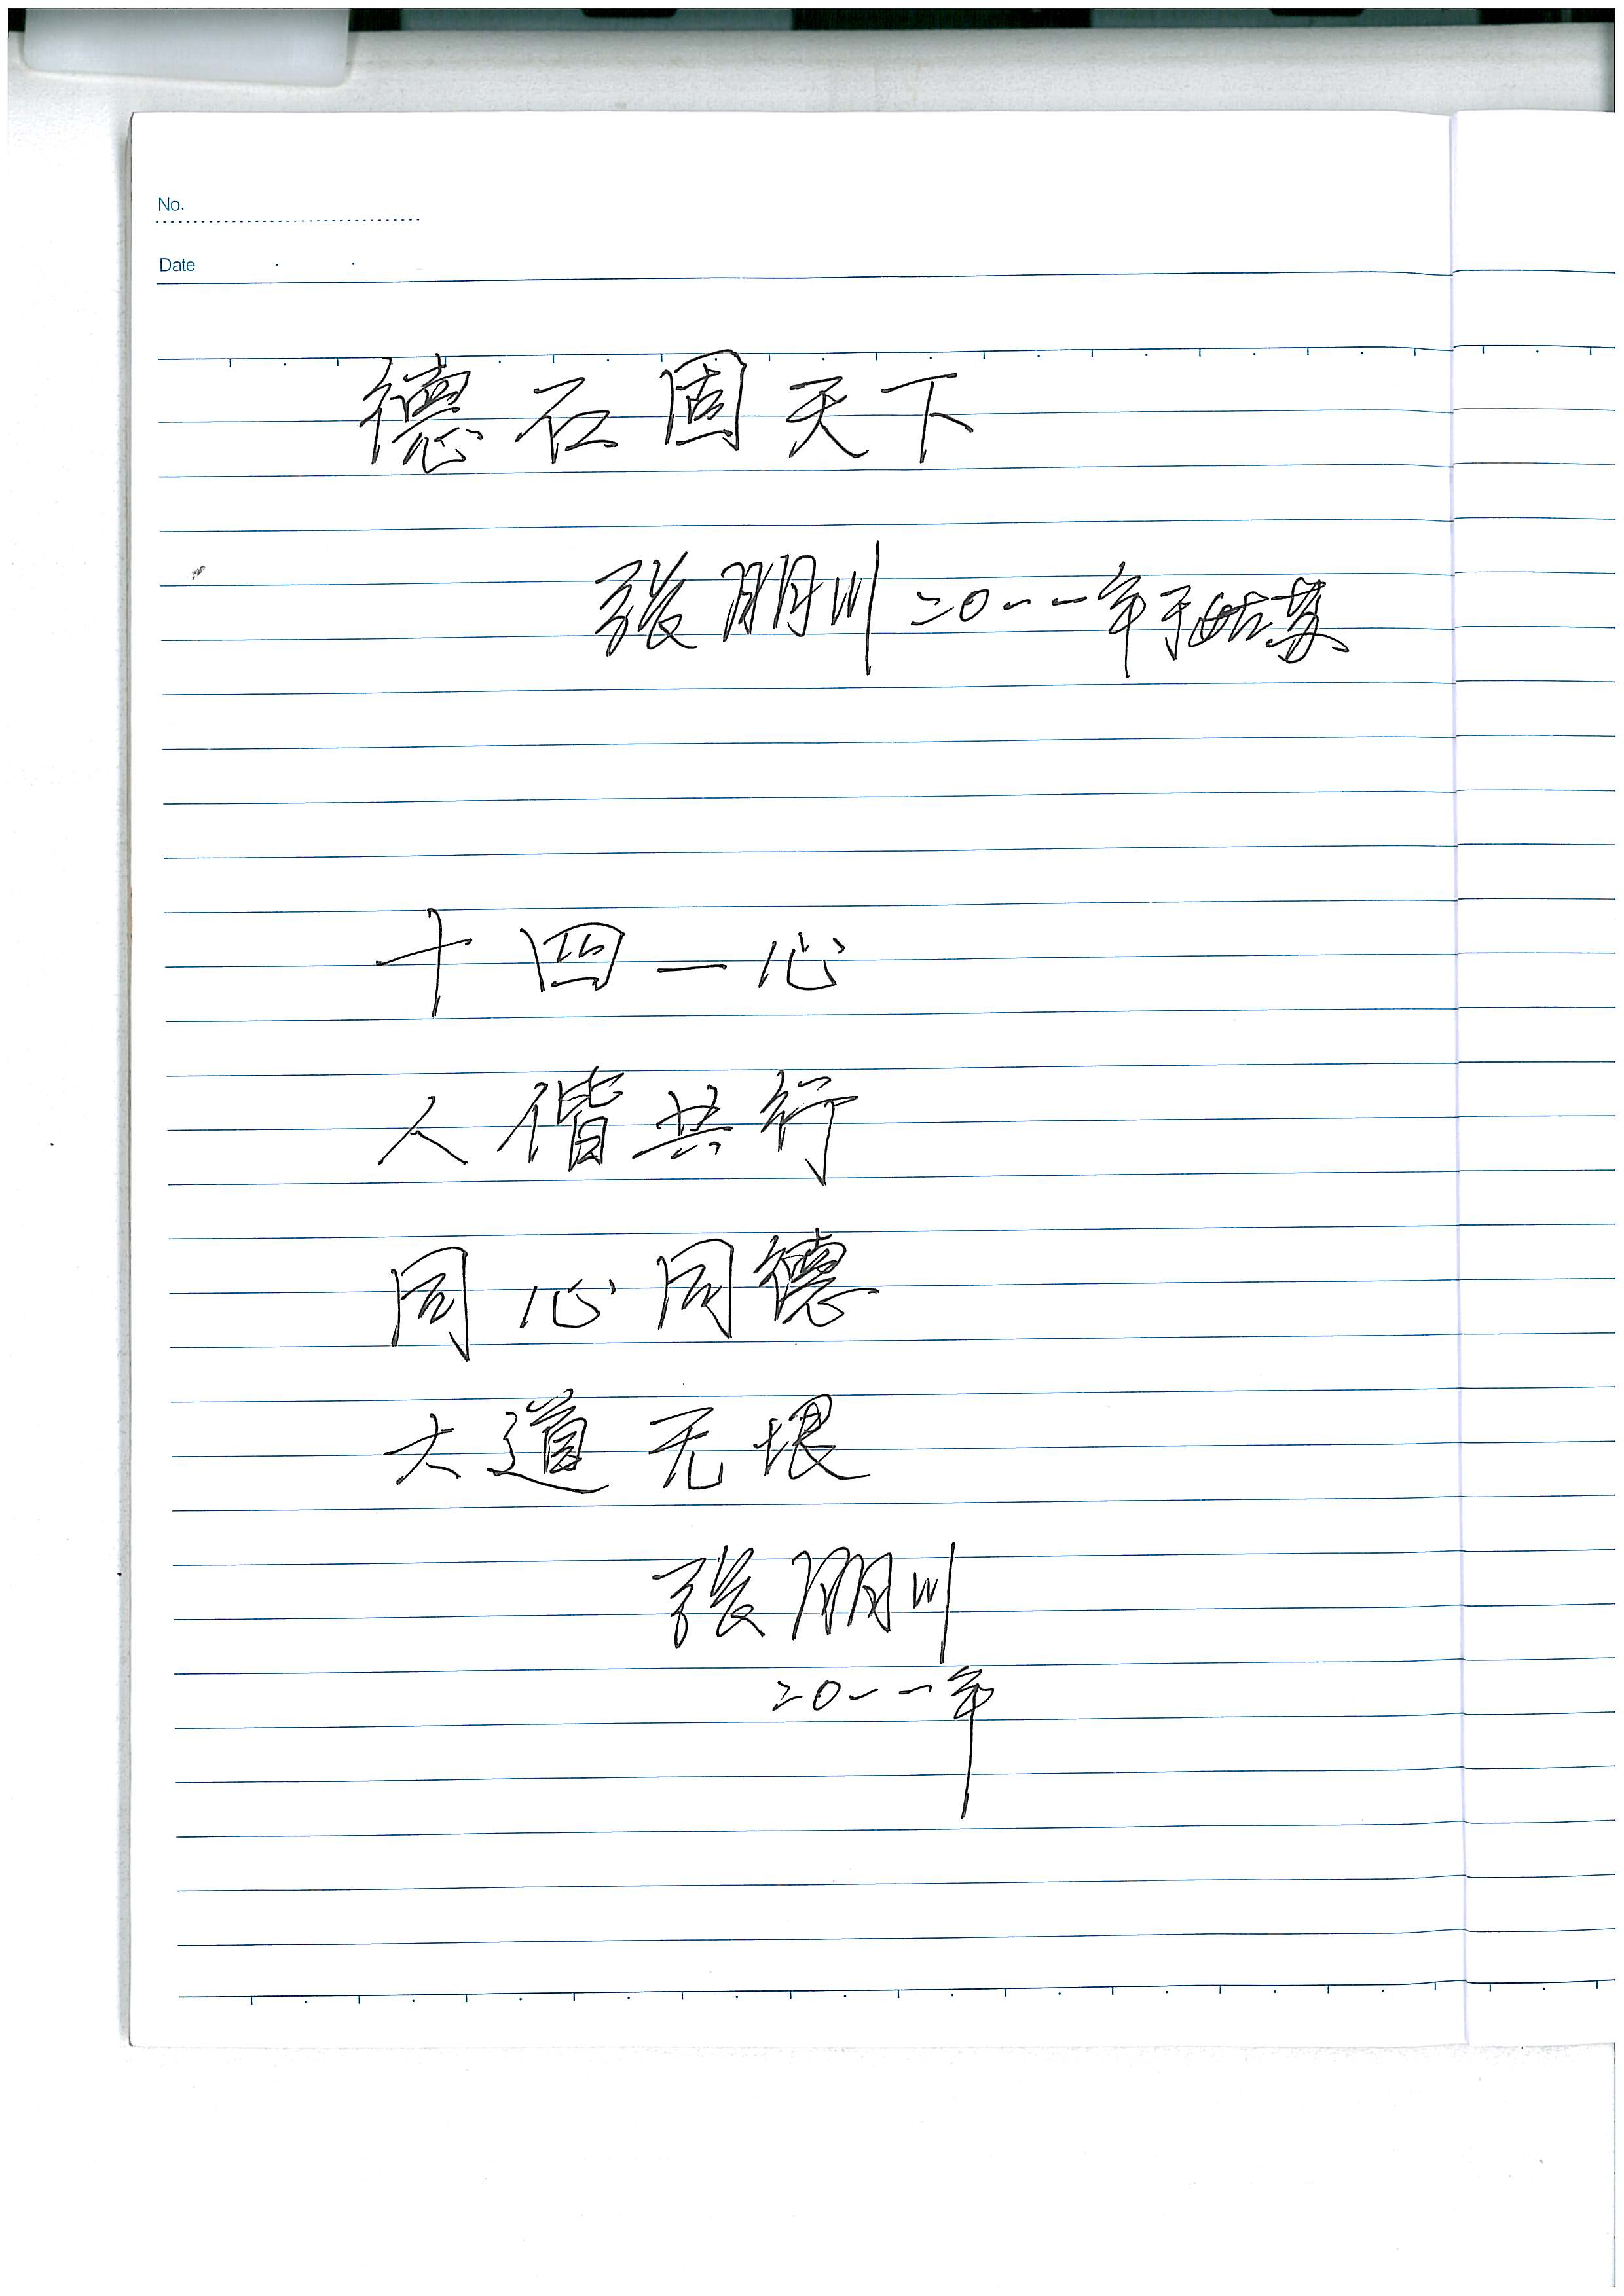 No.
Date
德石固天下
張朋川二〇一一年于姑苏
十四一心
人偕共行
同心同德
大道无垠
張朋川
二〇一一年